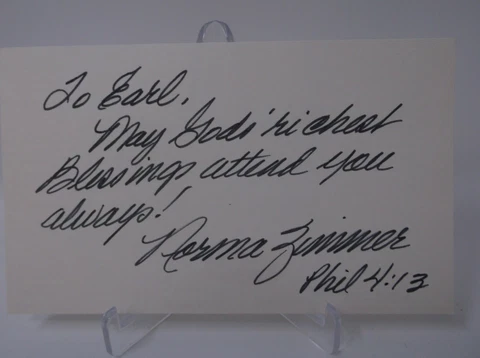 To Earl,
May Gods' richest
Blessings attend you
always!
Norma Zimmer
Phil 4:13